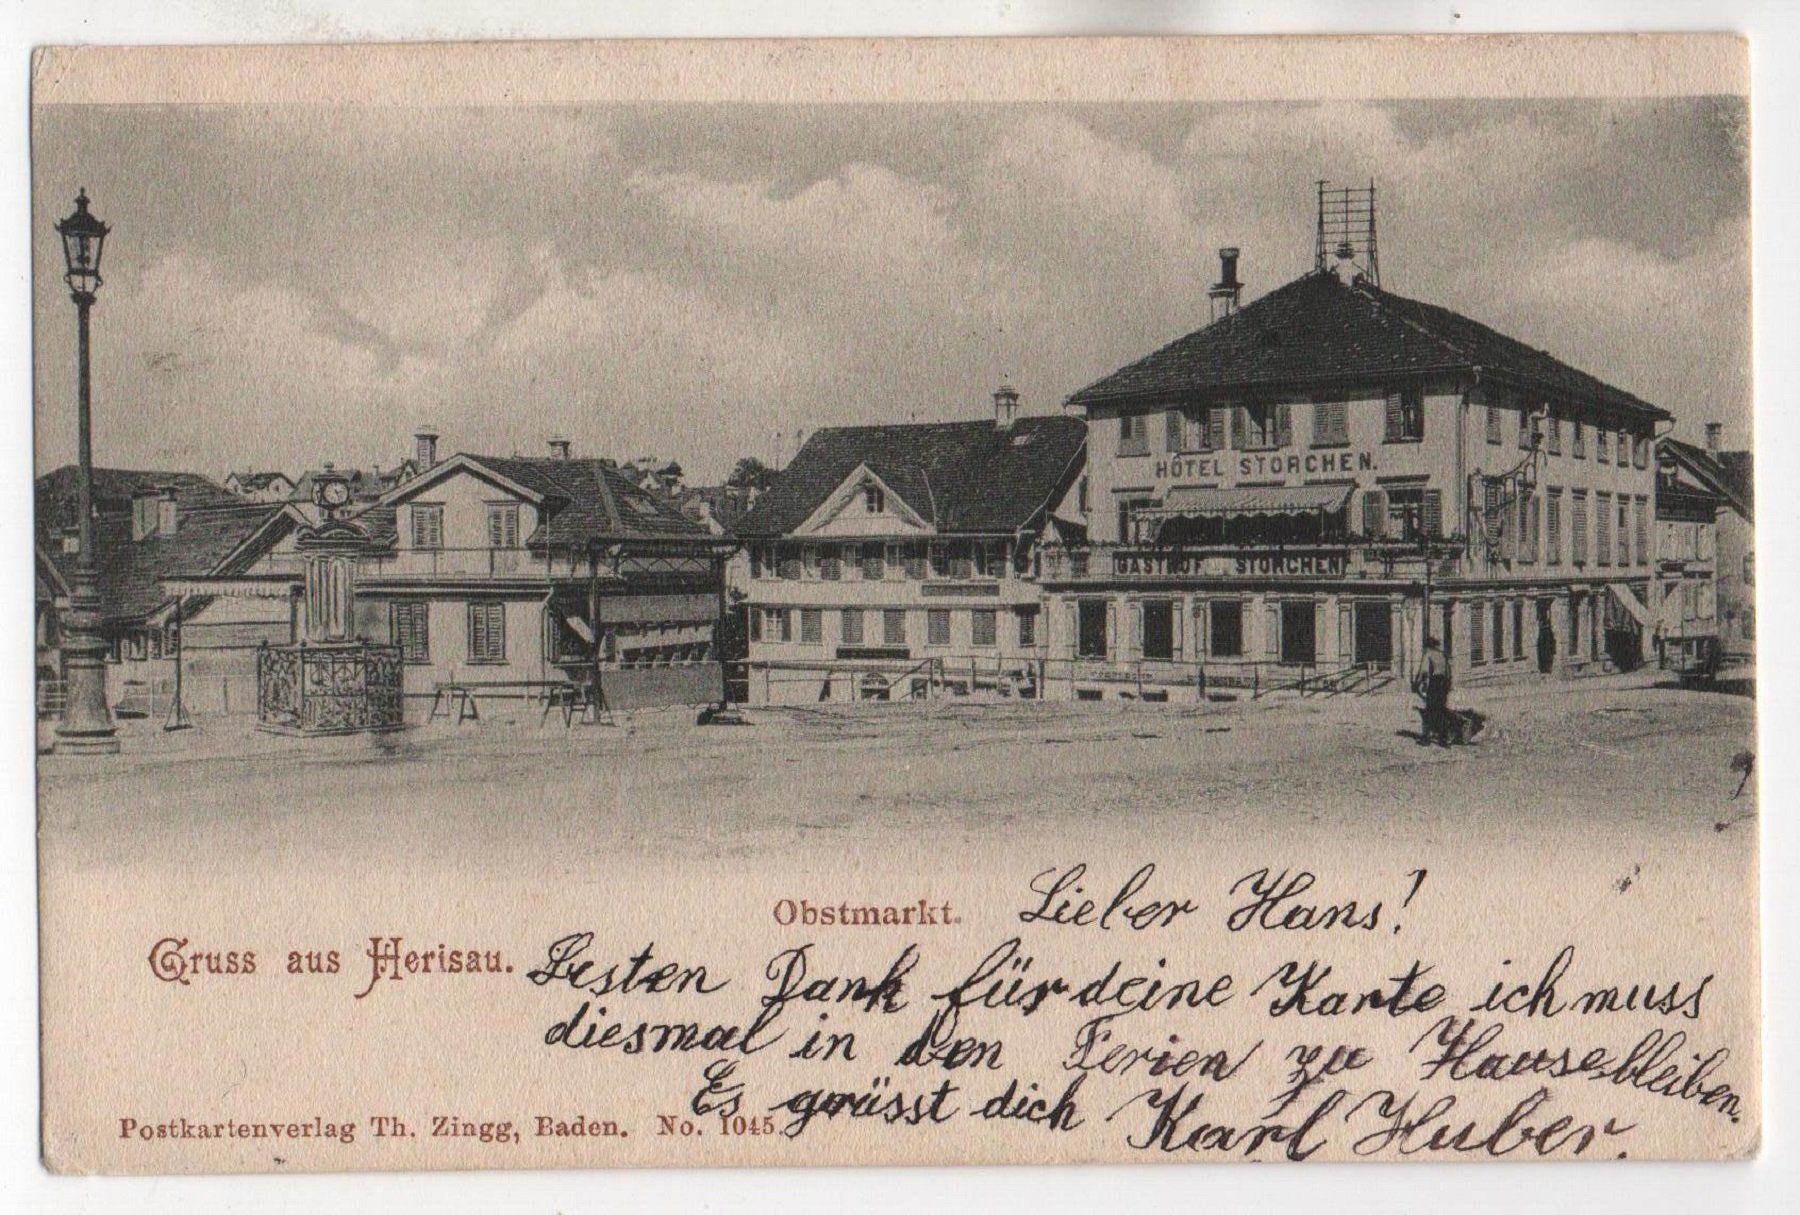 HOTEL STORCHEN.
GASTHOF STORCHEN
Obstmarkt.
Gruss aus Herisau.
Lieber Hans!
Besten Dank für deine Karte ich muss
diesmal in den Ferien zu Hause bleiben.
Es grüsst dich Karl Huber.
Postkartenverlag Th. Zingg, Baden. No. 1045.